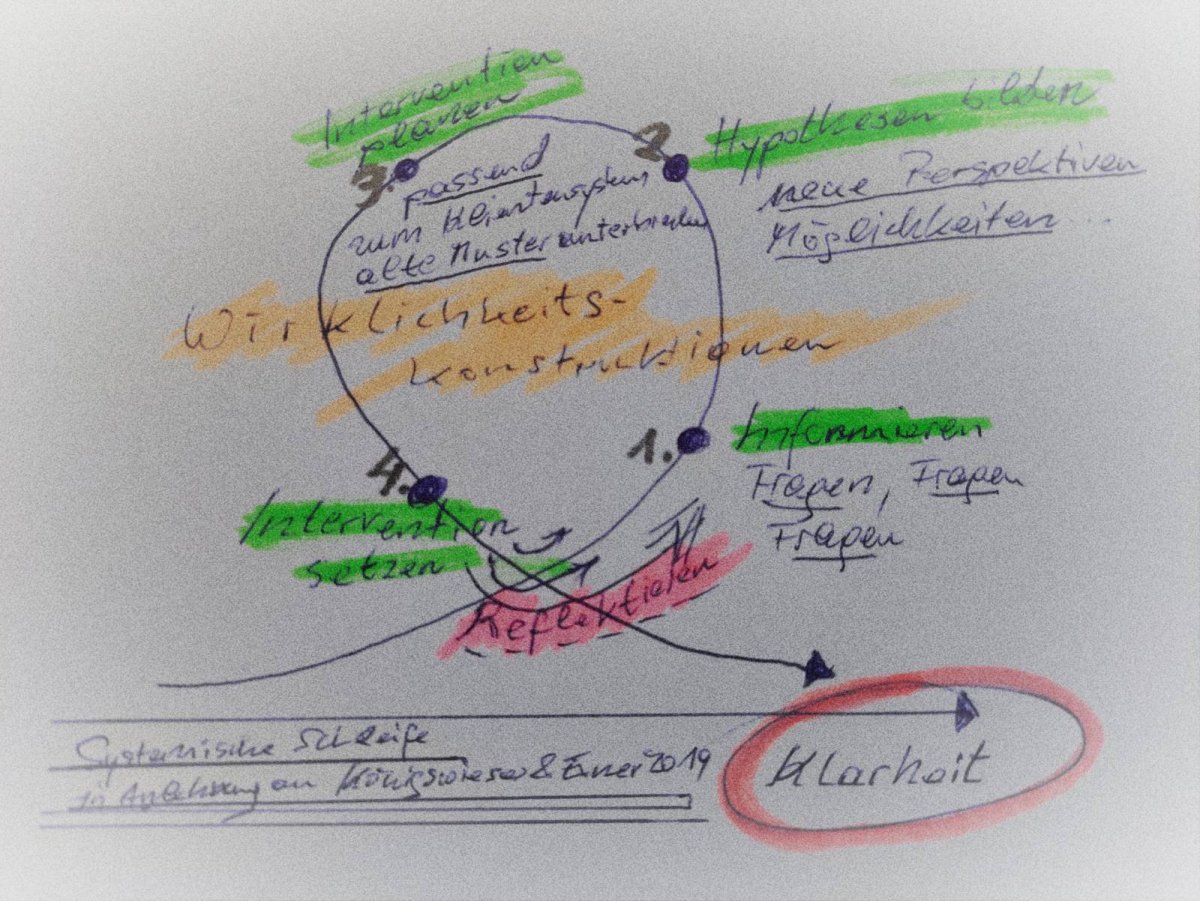 Intervention
planen
3.
2
Hypothesen bilden
neue Perspektiven
Möglichkeiten...
passend
zum Klientensystem
alte Muster unterbrechen
Wirklichkeits-
konstruktionen
1.
Informieren
Fragen, Fragen
Fragen
4.
Intervention
setzen
Reflektieren
Systemische Schleife
in Anlehnung an Königswieser & Exner 2019
Klarheit